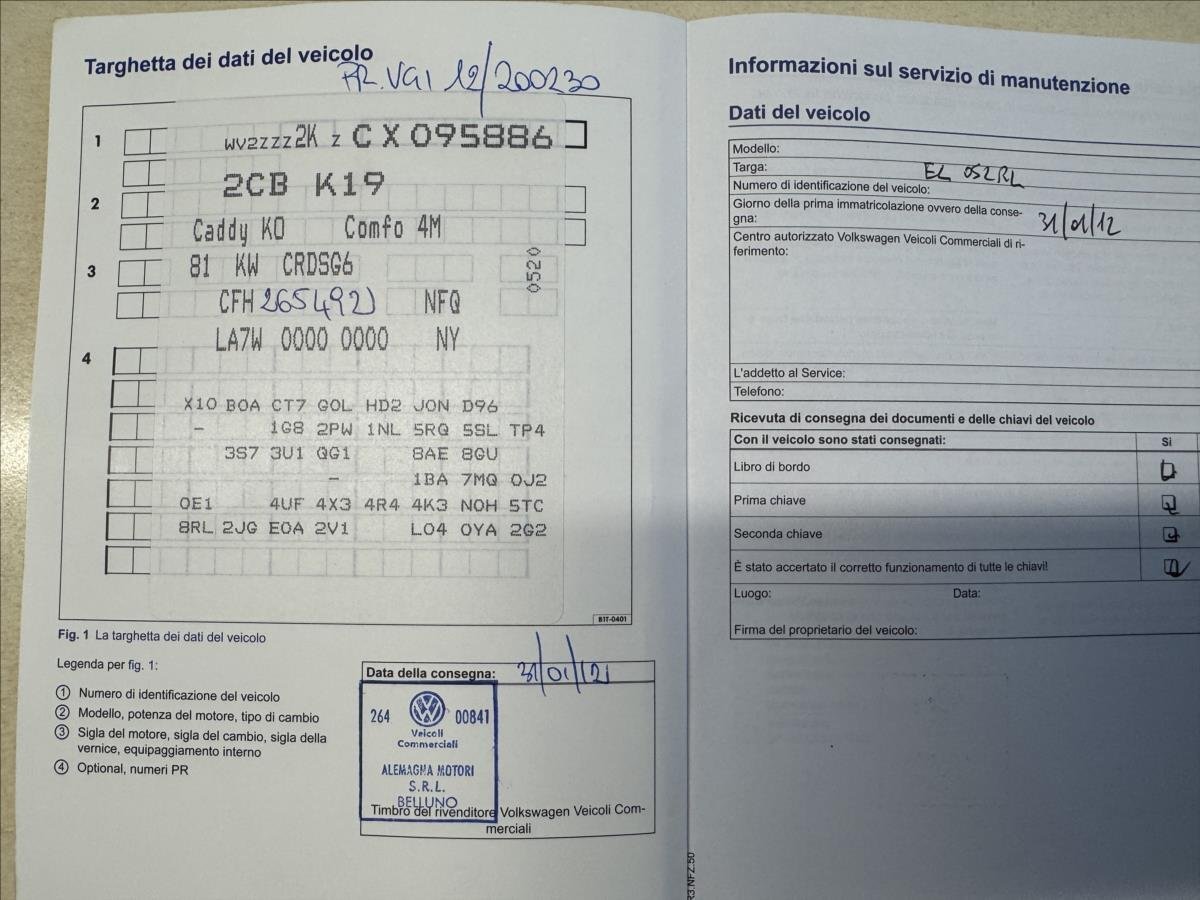 Targhetta dei dati del veicolo
PR.VGI 12/200230
1
WV2ZZZ2K Z CX095886
2CB K19
2
Caddy KO Comfo 4M
3
81 KW CRDSG6
0520
CFH 265492 NFQ
LA7W 0000 0000 NY
4
X10 BOA CT7 GOL HD2 JON D96
- 1G8 2PW 1NL 5RQ 5SL TP4
3S7 3U1 QG1 8AE 8GU
- 1BA 7MQ OJ2
OE1 4UF 4X3 4R4 4K3 NOH 5TC
8RL 2JG EOA 2V1 LO4 OYA 2G2
B1T-0401
Fig. 1 La targhetta dei dati del veicolo
Legenda per fig. 1:
1 Numero di identificazione del veicolo
2 Modello, potenza del motore, tipo di cambio
3 Sigla del motore, sigla del cambio, sigla della
vernice, equipaggiamento interno
4 Optional, numeri PR
Data della consegna: 31/01/12
264 00841
Veicoli
Commerciali
ALEMAGNA MOTORI
S.R.L.
BELLUNO
Timbro del rivenditore Volkswagen Veicoli Com-
merciali
Informazioni sul servizio di manutenzione
Dati del veicolo
Modello:
Targa: EL 052RL
Numero di identificazione del veicolo:
Giorno della prima immatricolazione ovvero della conse-
gna: 31/01/12
Centro autorizzato Volkswagen Veicoli Commerciali di ri-
ferimento:
L'addetto al Service:
Telefono:
Ricevuta di consegna dei documenti e delle chiavi del veicolo
Con il veicolo sono stati consegnati: Sì
Libro di bordo
Prima chiave
Seconda chiave
È stato accertato il corretto funzionamento di tutte le chiavi!
Luogo: Data:
Firma del proprietario del veicolo:
R3.NFZ.50